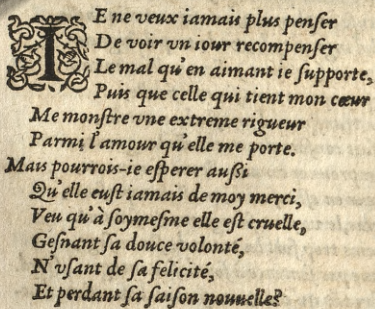 IE ne veux iamais plus penser
De voir vn iour recompenser
Le mal qu'en aimant ie supporte,
Puis que celle qui tient mon cœur
Me monstre vne extreme rigueur
Parmi l'amour qu'elle me porte.
Mais pourrois-ie esperer aussi
Qu'elle eust iamais de moy merci,
Veu qu'à soymesme elle est cruelle,
Gesnant sa douce volonté,
N'vsant de sa felicité,
Et perdant sa saison nouuelle?